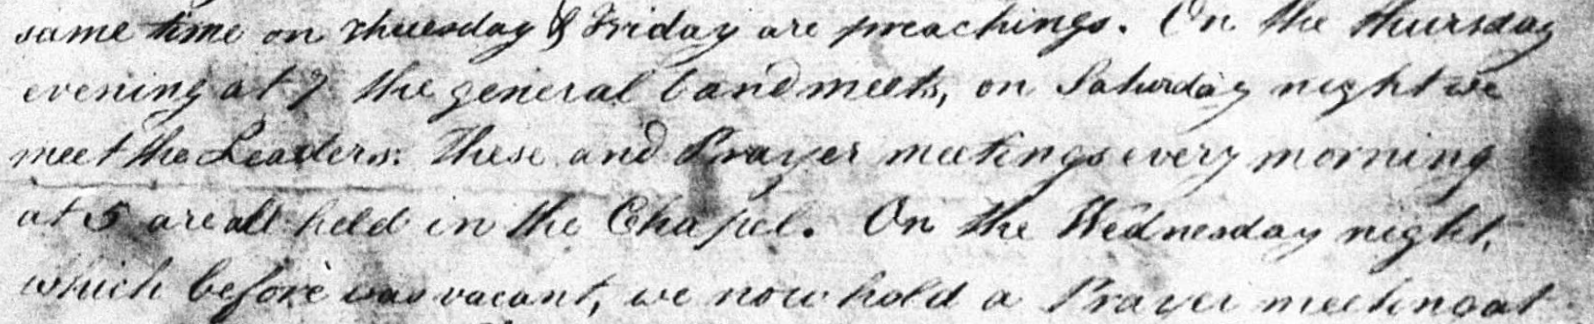 same time on Thuesday & Friday are preachings. On the thursday
evening at 7 the general band meets, on Saturday night we
meet the Leaders: These and Prayer meetings every morning
at 5 are all held in the Chapel. On the Wednesday night,
which before was vacant, we now hold a Prayer meeting at